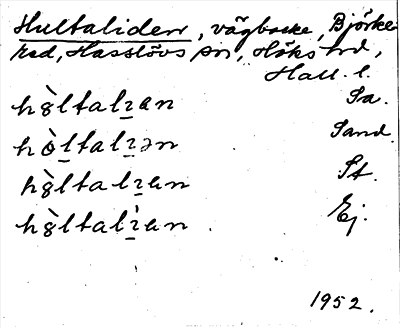 Hultaliden, vägbacke, Björke-
red, Hasslövs sn, Höks hd,
Hall. l.
hòltalɪan Sa.
hòltalɪən Sand.
hòltalɪan St.
hòltalɪan Ej.
1952.